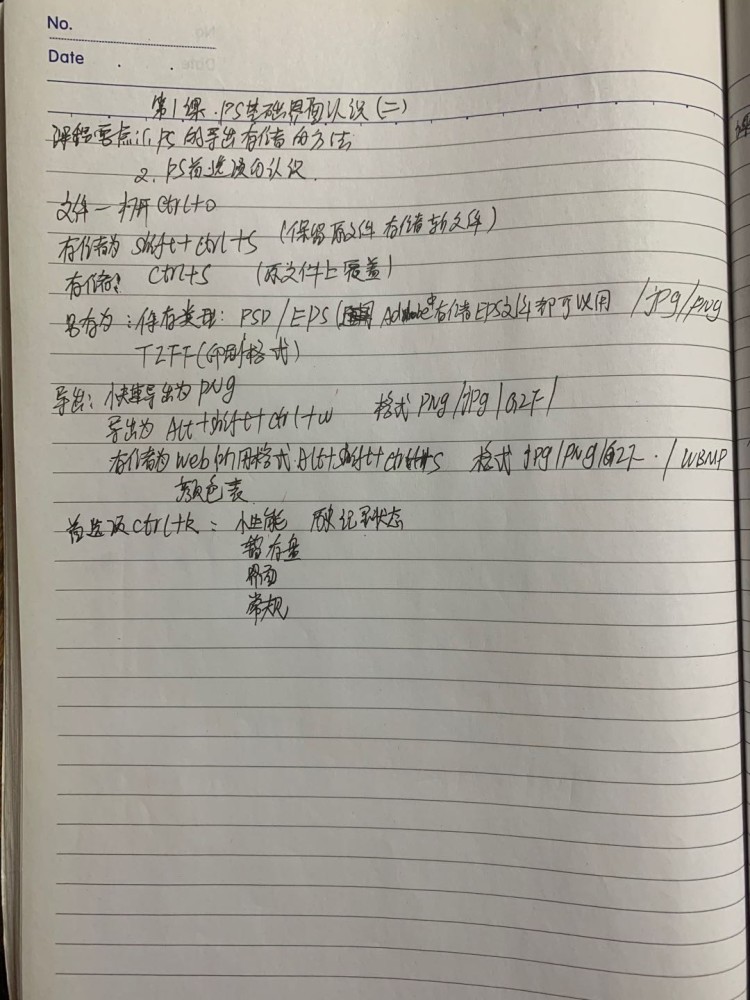 No.
Date
第1课.PS基础界面认识(二)
课程要点:1.PS的导出存储的方法
2.PS首选项的认识.
文件一打开 Ctrl+O
存储为 shift+ctrl+s (保留原文件 存储新文件)
存储: Ctrl+s (原文件上覆盖)
另存为:保存类型: PSD/EPS( Adobe 存储EPS文件都可以用 /jpg/png
TIFF(印刷格式)
导出:快速导出为png
导出为 Alt+shift+ctrl+w 格式 PNG/jpg/GIF/
存储为web所用格式 Alt+shift+ctrl+s 格式 jpg/png/GIF./WBMP
颜色表
首选项ctrl+k: 性能 历史记录状态
暂存盘
界面
常规